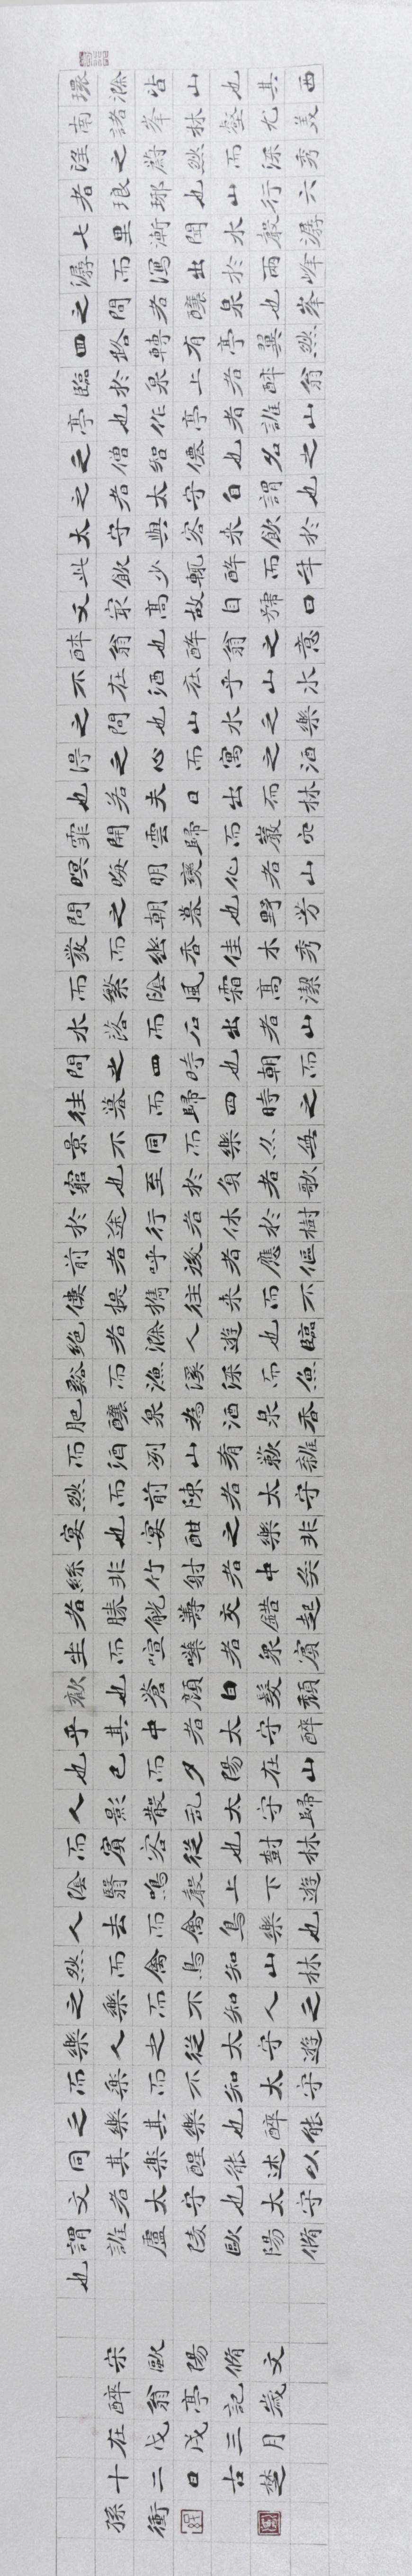 環滁皆山也其西
南諸峯林壑尤美
望之蔚然而深秀
者琅琊也山行六
七里漸聞水聲潺
潺而瀉出於兩峰
之間者釀泉也峯
回路轉有亭翼然
臨於泉上者醉翁
亭也作亭者誰山
之僧智僊也名之
者誰太守自謂也
太守與客來飲於
此飲少輒醉而年
又最高故自號曰
醉翁也醉翁之意
不在酒在乎山水
之間也山水之樂
得之心而寓之酒
也若夫日出而林
霏開雲歸而巖穴
暝喚明變化者山
間之朝暮也野芳
發而幽香佳木秀
而繁陰風霜高潔
水落而石出者山
間之四時也朝而
往暮而歸四時之
景不同而樂亦無
窮也至於負者歌
於途行者休於樹
前者呼後者應傴
僂提攜往來而不
絶者滁人遊也臨
谿而漁溪深而魚
肥釀泉為酒泉香
而酒洌山肴蔌雜
然而前陳者太守
宴也宴酣之樂非
絲非竹射者中矣
者勝觥籌交錯起
坐而喧嘩者眾賓
歡也蒼顏白髮頹
乎其中者太守醉
也已而夕陽在山
人影散乱太守歸
而賓客從也樹林
陰翳鳴聲上下遊
人去而禽鳥樂也
然而禽鳥知山林
之樂而不知人之
樂人之從太守遊
而樂而不知太守
之樂其樂也醉能
同其樂醒能述以
文者太守也太守
謂誰廬陵歐陽脩
也
宋歐陽脩文
醉翁亭記歲
在戊戌三月
十二日古楚
孫衝